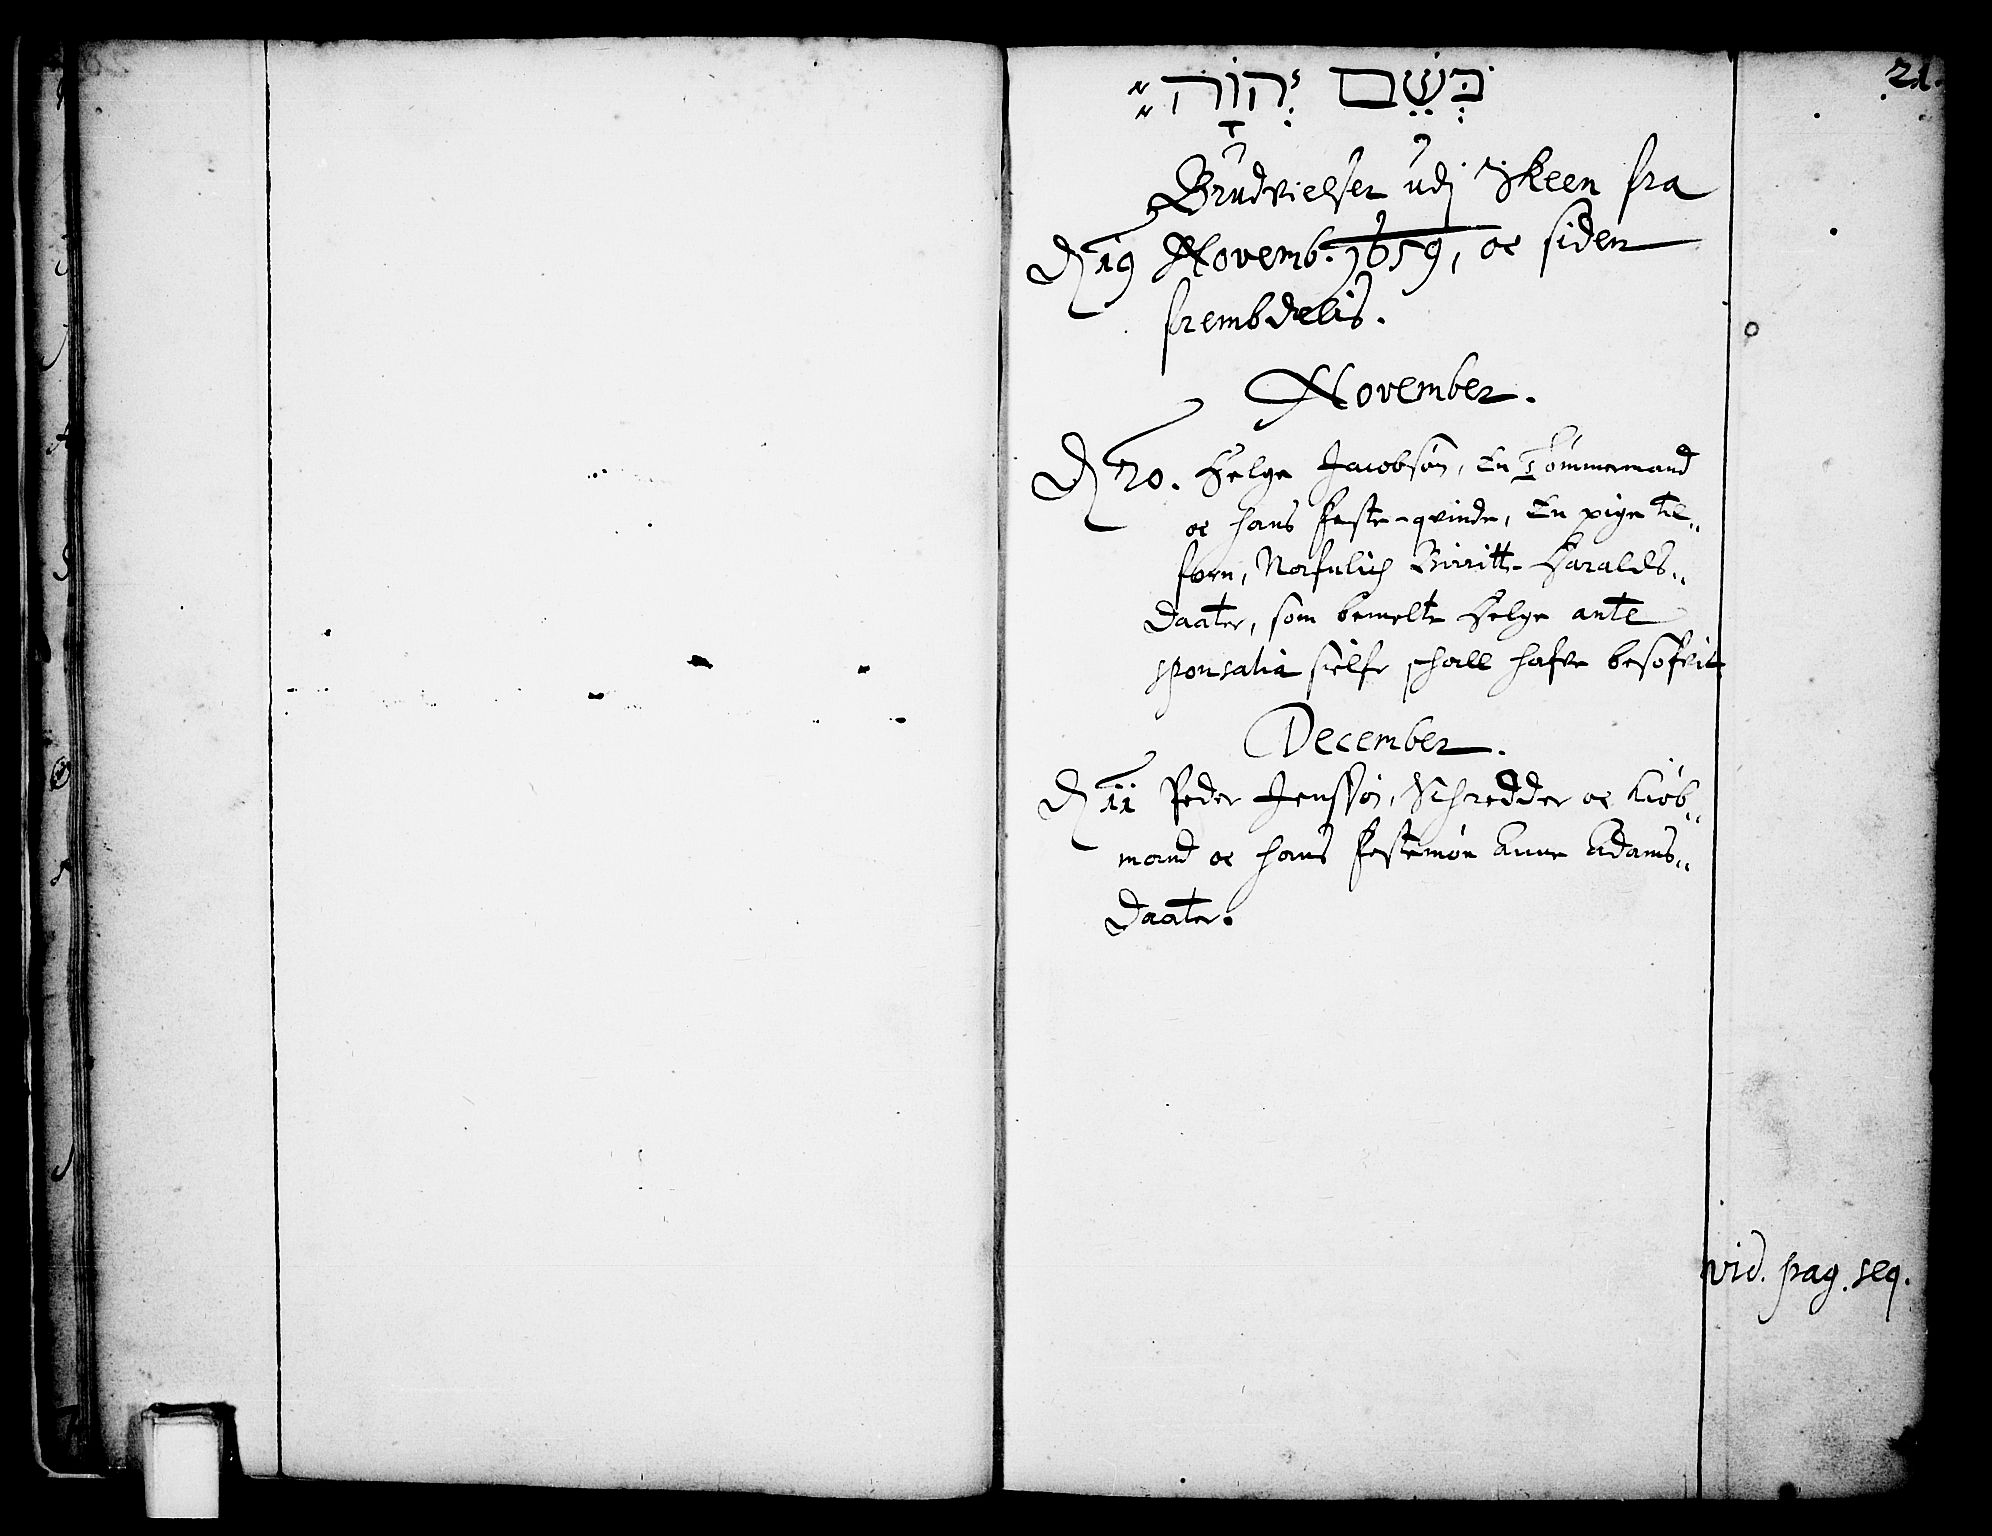 21.
בְּשֵׁם יְהוָֹה
Brudvielser udj Skeen fra
D 19 Novemb. 1659, oc siden
frembdelis.
November.
D 20. Helge Jacobsøn, En Tømmermand
oc hans feste-qvinde, En pige til-
forn, Nafnlich Birritte Haralds-
daater, som bemelte Helge ante
sponsalia sielfe schall hafve besofvit
December.
D 11 Peder Jenssøn, Schredder oc Kiøb-
mand oc hans festemøe Anne Adams-
daater.
vid. pag. seq.